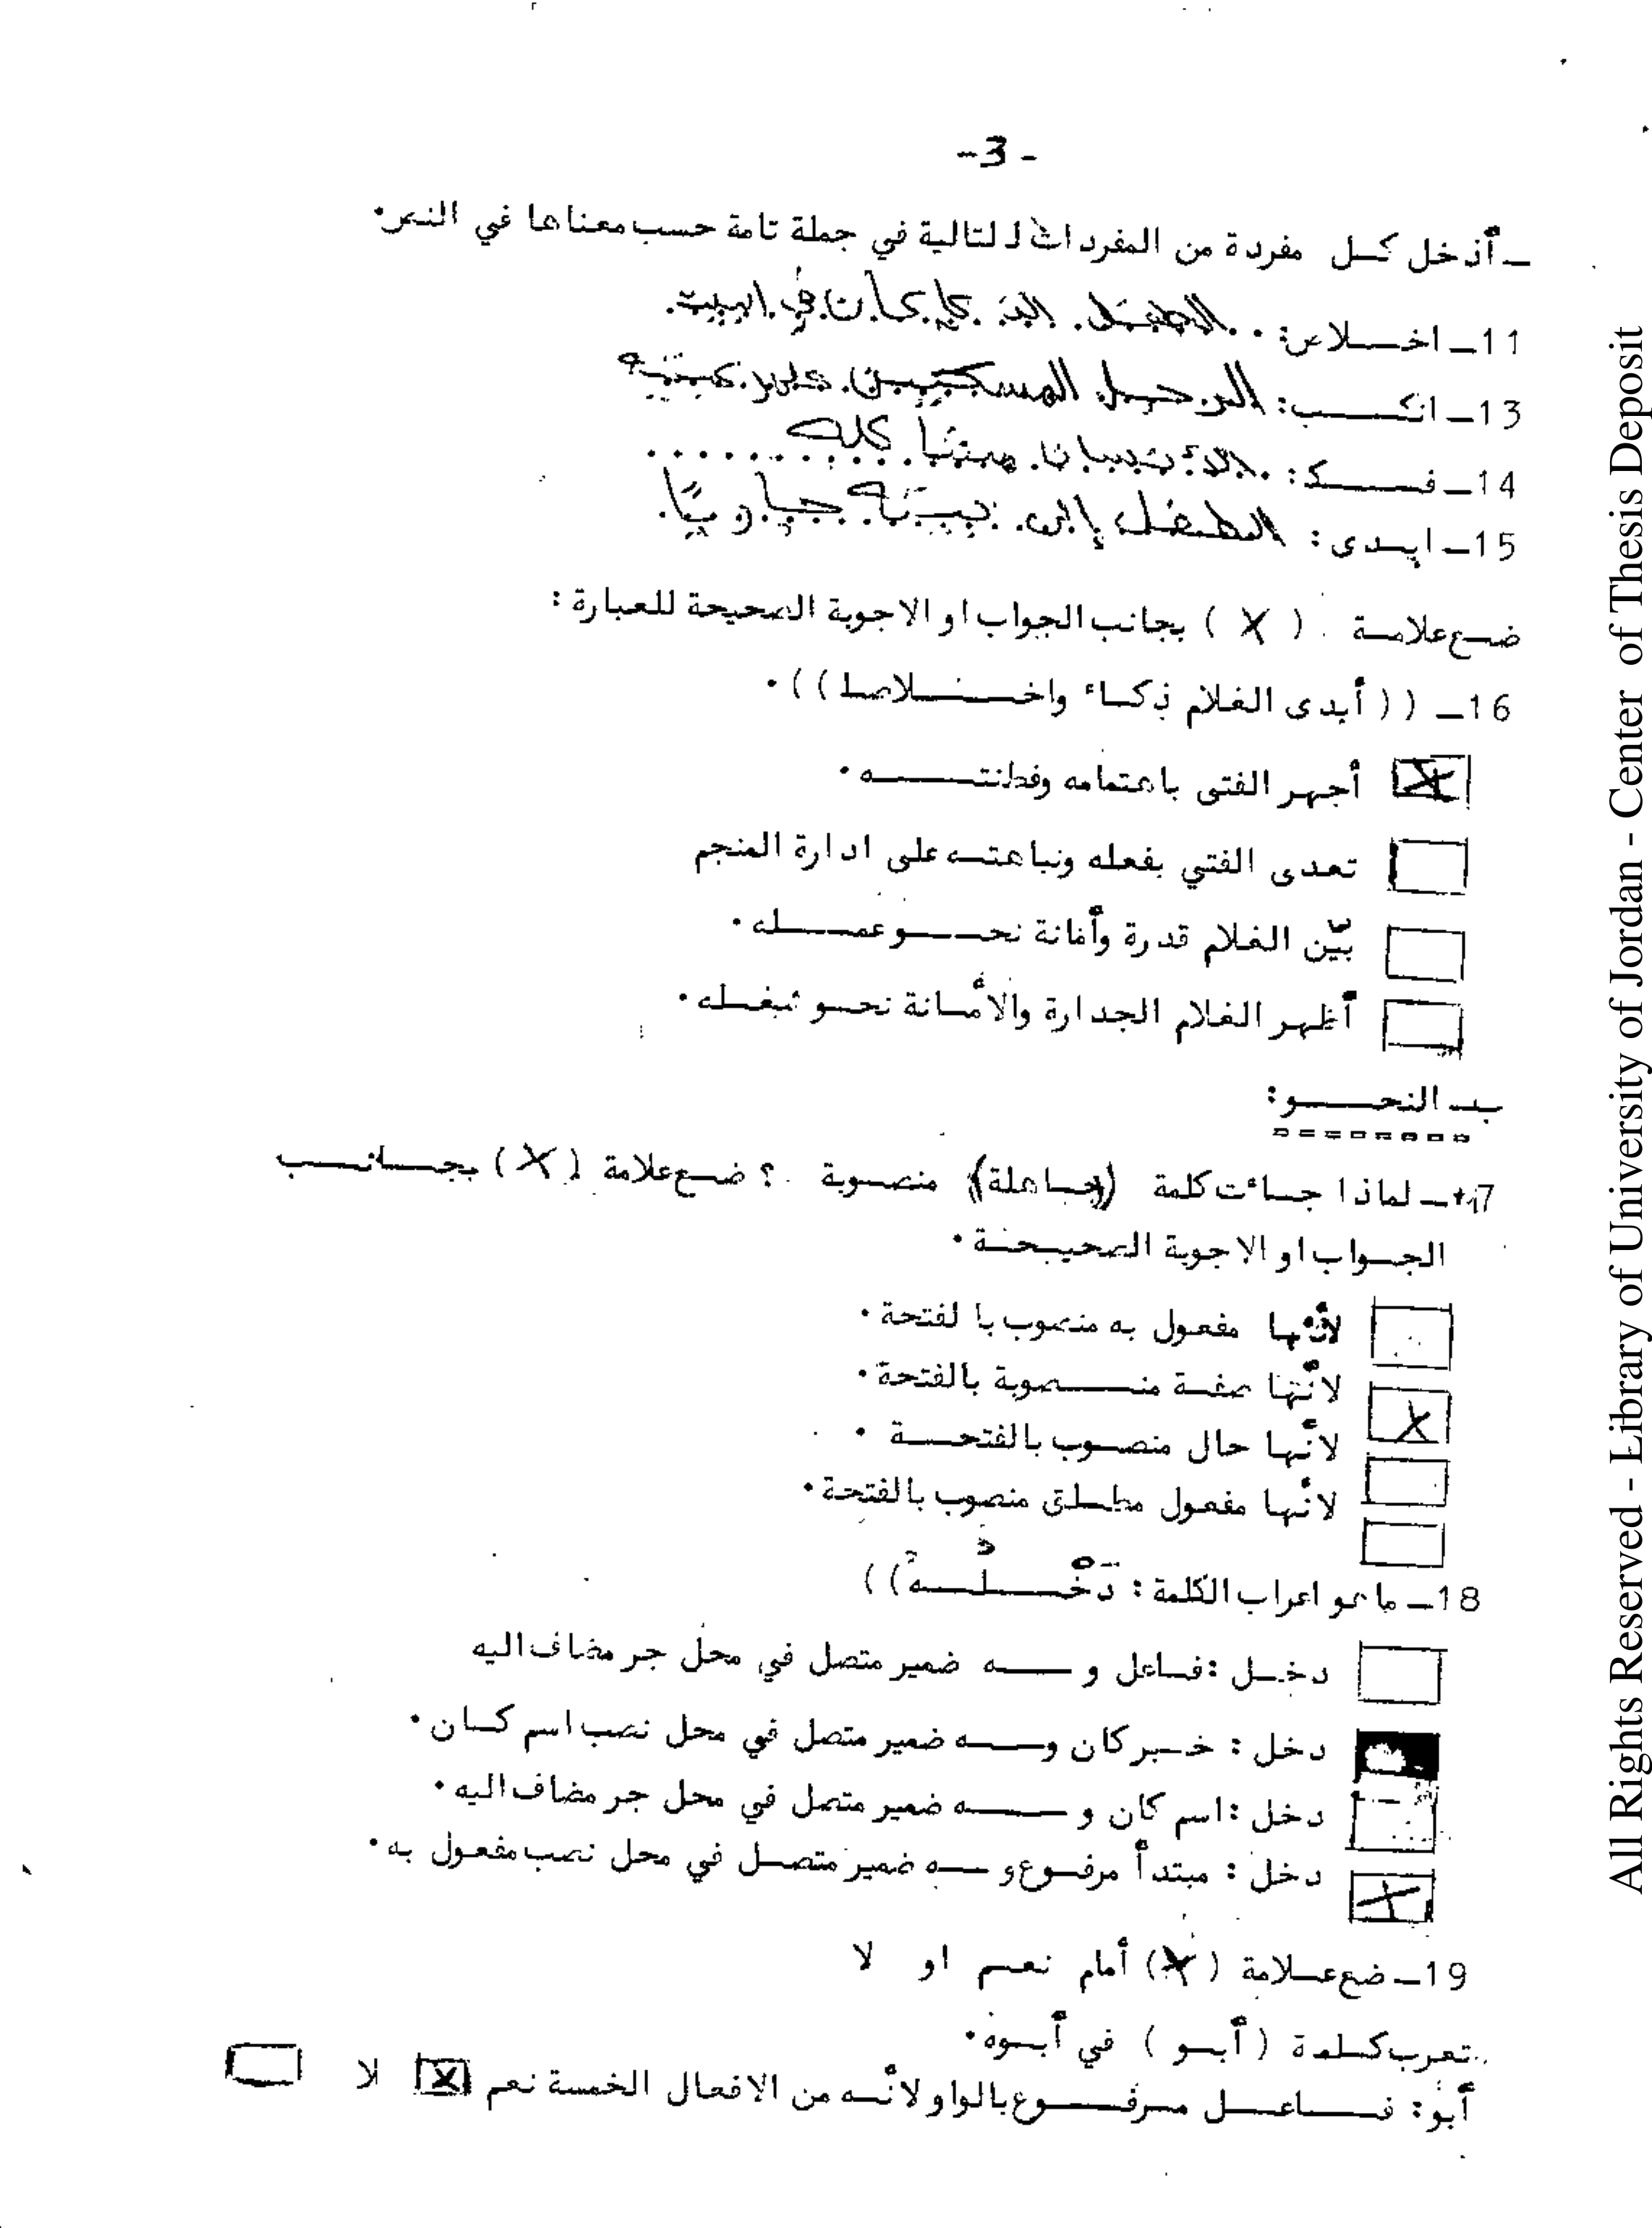 -3-
ـ أدخل كل مفردة من المفردات لـ لتالية في جملة تامة حسب معناها في النص.
11ـ اخلاص: الطفل كان في البيت.
13ـ انكب: الرجل المسكين على
14ـ فك: كله
15ـ ابدى: الطفل إلى
ضع علامة ( X ) بجانب الجواب او الاجوبة الصحيحة للعبارة :
16ـ (( أبدى الغلام ذكاء واخلاصا )).
أجهر الفتى باهتمامه وفطنته.
تعدى الفتي بفعله ونباهته على ادارة المنجم
بيّن الغلام قدرة وأمانة نحو عمله.
أظهر الغلام الجدارة والأمانة نحو شغله.
بـ النحو:
17ـ لماذا جاءت كلمة ((جاهلة)) منصوبة ؟ ضع علامة ( X ) بجانب
الجواب او الاجوبة الصحيحة.
لأنّها مفعول به منصوب با لفتحة.
لانّها صفة منصوبة بالفتحة.
لانّها حال منصوب بالفتحة .
لانّها مفعول مطلق منصوب بالفتحة.
18ـ ما هو اعراب الكلمة : دَخْلُهُ ))
دخل : فاعل و ـه ضمير متصل في محل جر مضاف اليه
دخل : خبر كان و ـه ضمير متصل في محل نصب اسم كان.
دخل : اسم كان و ـه ضمير متصل في محل جر مضاف اليه.
دخل : مبتدأ مرفوع و ـه ضمير متصل في محل نصب مفعول به.
19ـ ضع علامة ( X ) أمام نعم او لا
تعرب كلمة ( أبو ) في أبوه.
أبو : فاعل مرفوع بالواو لانّه من الافعال الخمسة نعم X لا
All Rights Reserved - Library of University of Jordan - Center of Thesis Deposit